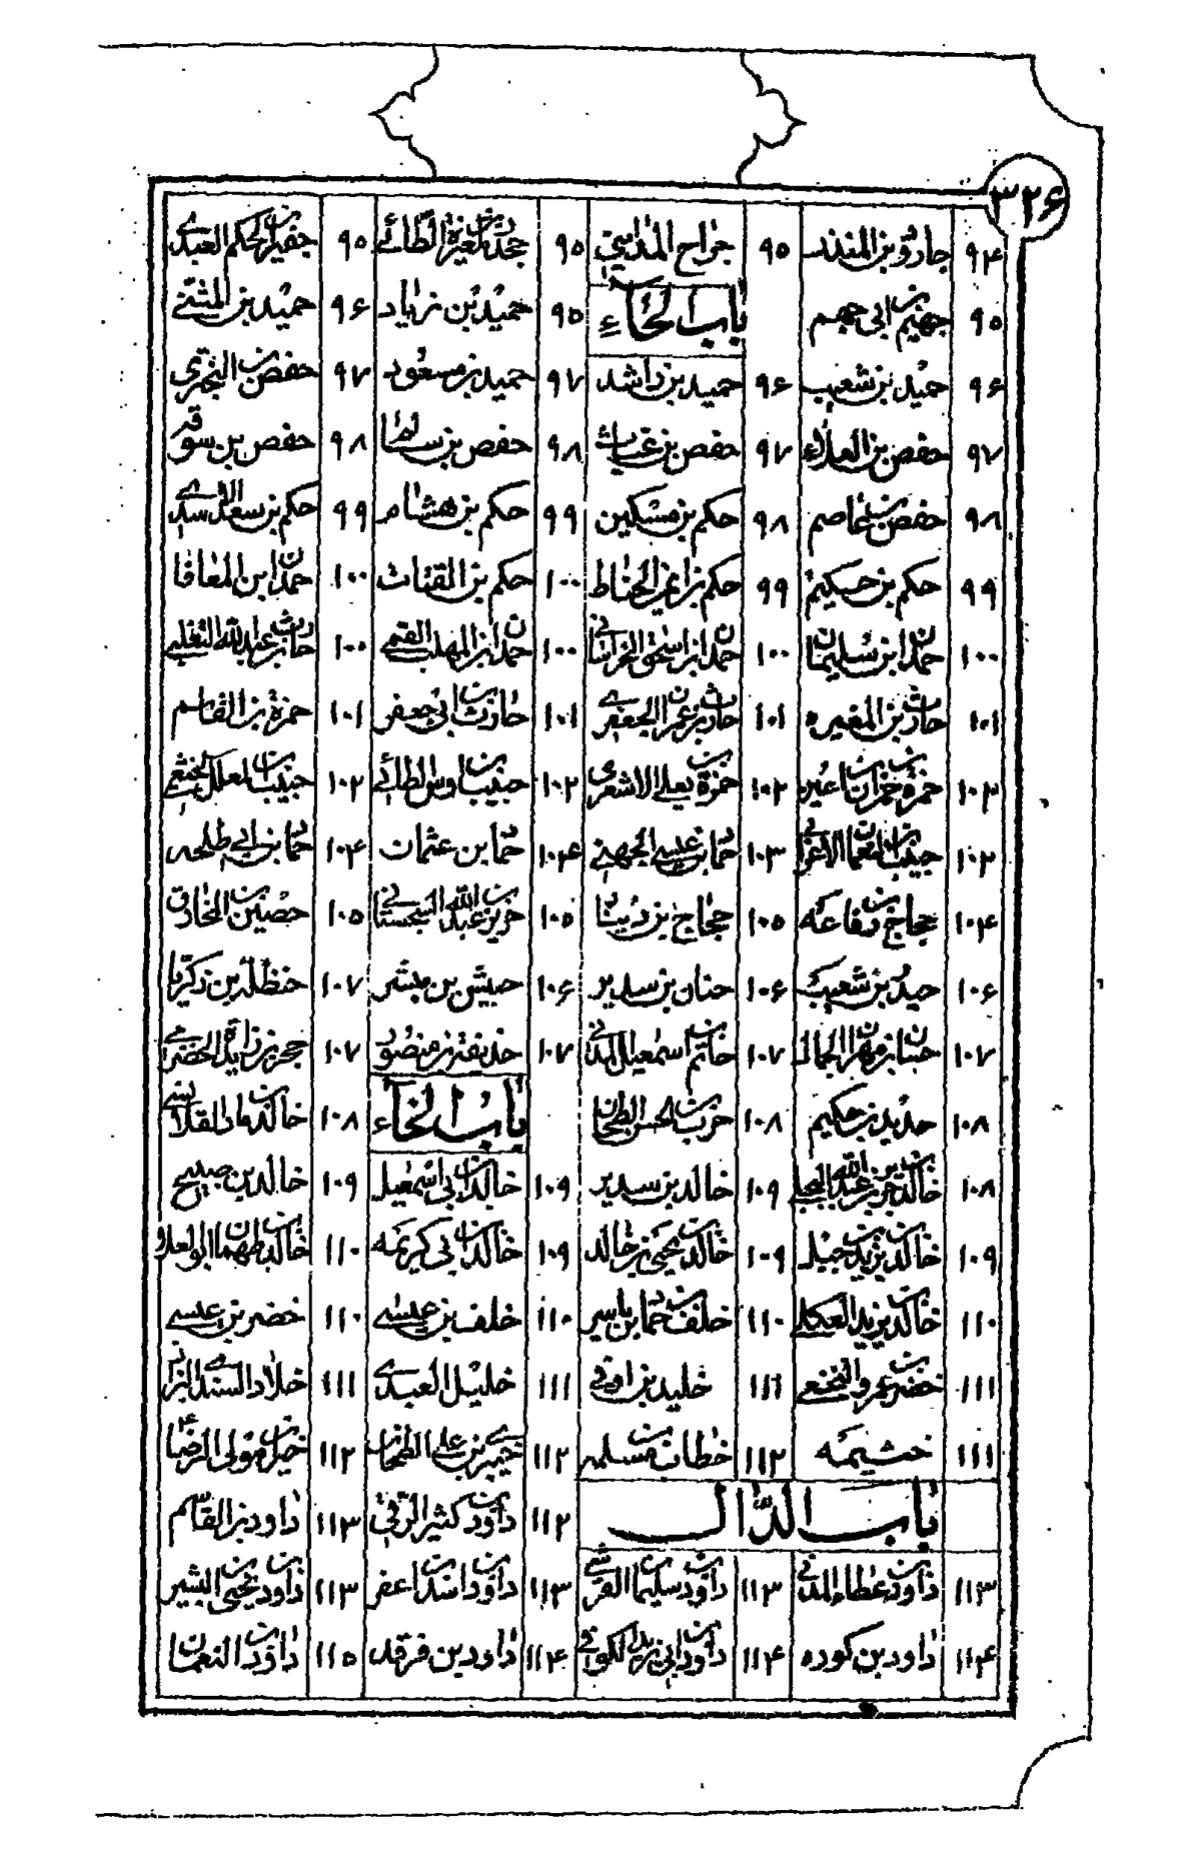 ٣٢۶
٩۴ جارود بن المنذر ٩۵ جراح المدايني ٩۵ جحدر بن المغيرة الطائي ٩۵ جفير بن الحكم العبدي
٩۵ جهيم بن ابى جهم باب الحاء ٩۵ حميد بن زياد ٩۶ حميد بن المثنى
٩۶ حميد بن شعيب ٩۶ حميد بن راشد ٩٧ حميد بن مسعود ٩٧ حفص بن البختري
٩٧ حفص بن العلاء ٩٧ حفص بن غياث ٩٨ حفص بن سالم ٩٨ حفص بن سوقه
٩٨ حفص بن عاصم ٩٨ حكم بن مسكين ٩٩ حكم بن هشام ٩٩ حكم بن سعد الاسدي
٩٩ حكم بن حكيم ٩٩ حكم بن ايمن الحناط ١٠٠ حكم بن القتات ١٠٠ حمدان بن المعافا
١٠٠ حمدان بن سليمان ١٠٠ حمدان بن اسحق الخراسانى ١٠٠ حمدان بن المهلب القمي ١٠٠ حارث بن عبدالله التغلبي
١٠١ حارث بن المغيره ١٠١ حارث بن عمران الجعفري ١٠١ حارث بن ابى جعفر ١٠١ حمزة بن القاسم
١٠٢ حمزة بن حمران بن اعين ١٠٢ حمزة بن يعلى الاشعري ١٠٢ حبيب بن اوس الطائي ١٠٢ حبيب بن المعلل الخثعمي
١٠٢ حبيب بن النعمان الاعرابى ١٠٣ حماد بن عيسى الجهني ١٠۴ حماد بن عثمان ١٠۴ حماد بن ابى طلحه
١٠۴ حجاج بن رفاعه ١٠۵ حجاج بن دينار ١٠۵ حريز بن عبدالله السجستانى ١٠۵ حصين بن المخارق
١٠۶ حيد بن شعيب ١٠۶ حنان بن سدير ١٠۶ حبيش بن مبشر ١٠٧ حنظلة بن زكريا
١٠٧ حسان بن مهران الجمال ١٠٧ حاتم بن اسمعيل المدنى ١٠٧ حذيفة بن منصور ١٠٧ حجر بن زايدة الحضرمي
١٠٨ حديد بن حكيم ١٠٨ حرب بن الحسن الطحان باب الخاء ١٠٨ خالد بن ماد القلانسي
١٠٨ خالد بن جرير بن عبدالله البجلي ١٠٩ خالد بن سدير ١٠٩ خالد بن ابى اسمعيل ١٠٩ خالد بن صبيح
١٠٩ خالد بن يزيد بن جبل ١٠٩ خالد بن يحيى بن خالد ١٠٩ خالد بن ابى كريمه ١١٠ خالد بن طهمان ابو العلاء
١١٠ خالد بن يزيد العكلي ١١٠ خلف بن حماد بن ياسر ١١٠ خلف بن عيسى ١١٠ خضر بن عيسى
١١١ خضر بن عمرو النخعي ١١١ خليد بن اوفى ١١١ خليل العبدي ١١١ خلاد السندي البزاز
١١١ خثيمه ١١٢ خطاب بن مسلمه ١١٢ خيبري بن علي الطحان ١١٢ خيران مولى الرضا ع
باب الدال ١١٢ داود بن كثير الرقي ١١٣ داود بن القاسم
١١٣ داود بن عطاء المدنى ١١٣ داود بن سليمان القرشي ١١٣ داود بن اسد بن اعفر ١١٣ داود بن يحيى بن البشير
١١۴ داود بن كوره ١١۴ داود بن ابى يزيد الكوفى ١١۴ داود بن فرقد ١١۵ داود بن النعمان